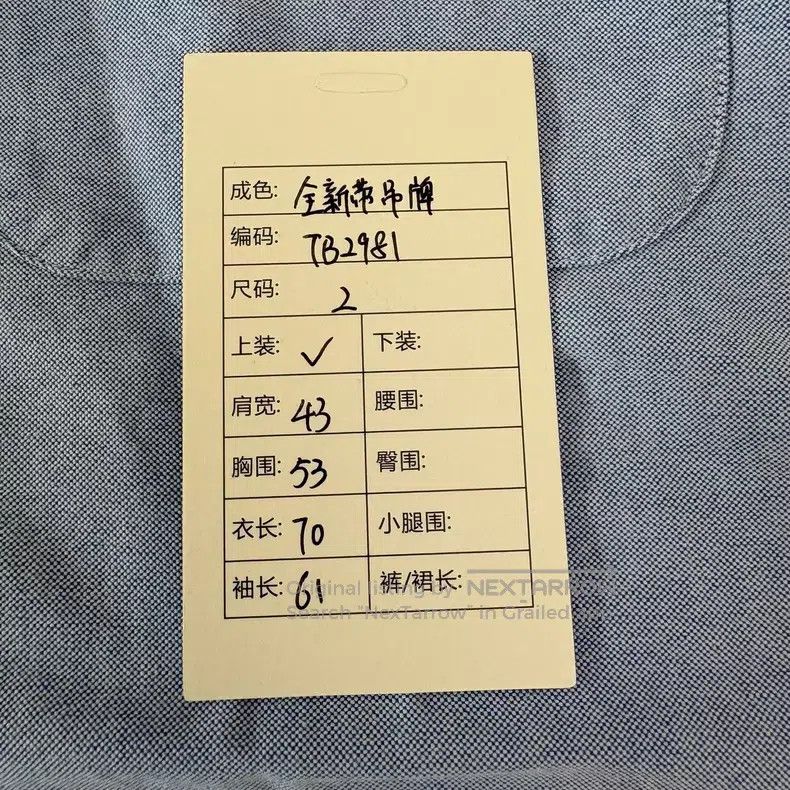 成色: 全新带吊牌
编码: TB2981
尺码: 2
上装: ✓ 下装:
肩宽: 43 腰围:
胸围: 53 臀围:
衣长: 70 小腿围:
袖长: 61 裤/裙长:
Original listing by NEXTARROW
Search "NexTarrow" in Grailed